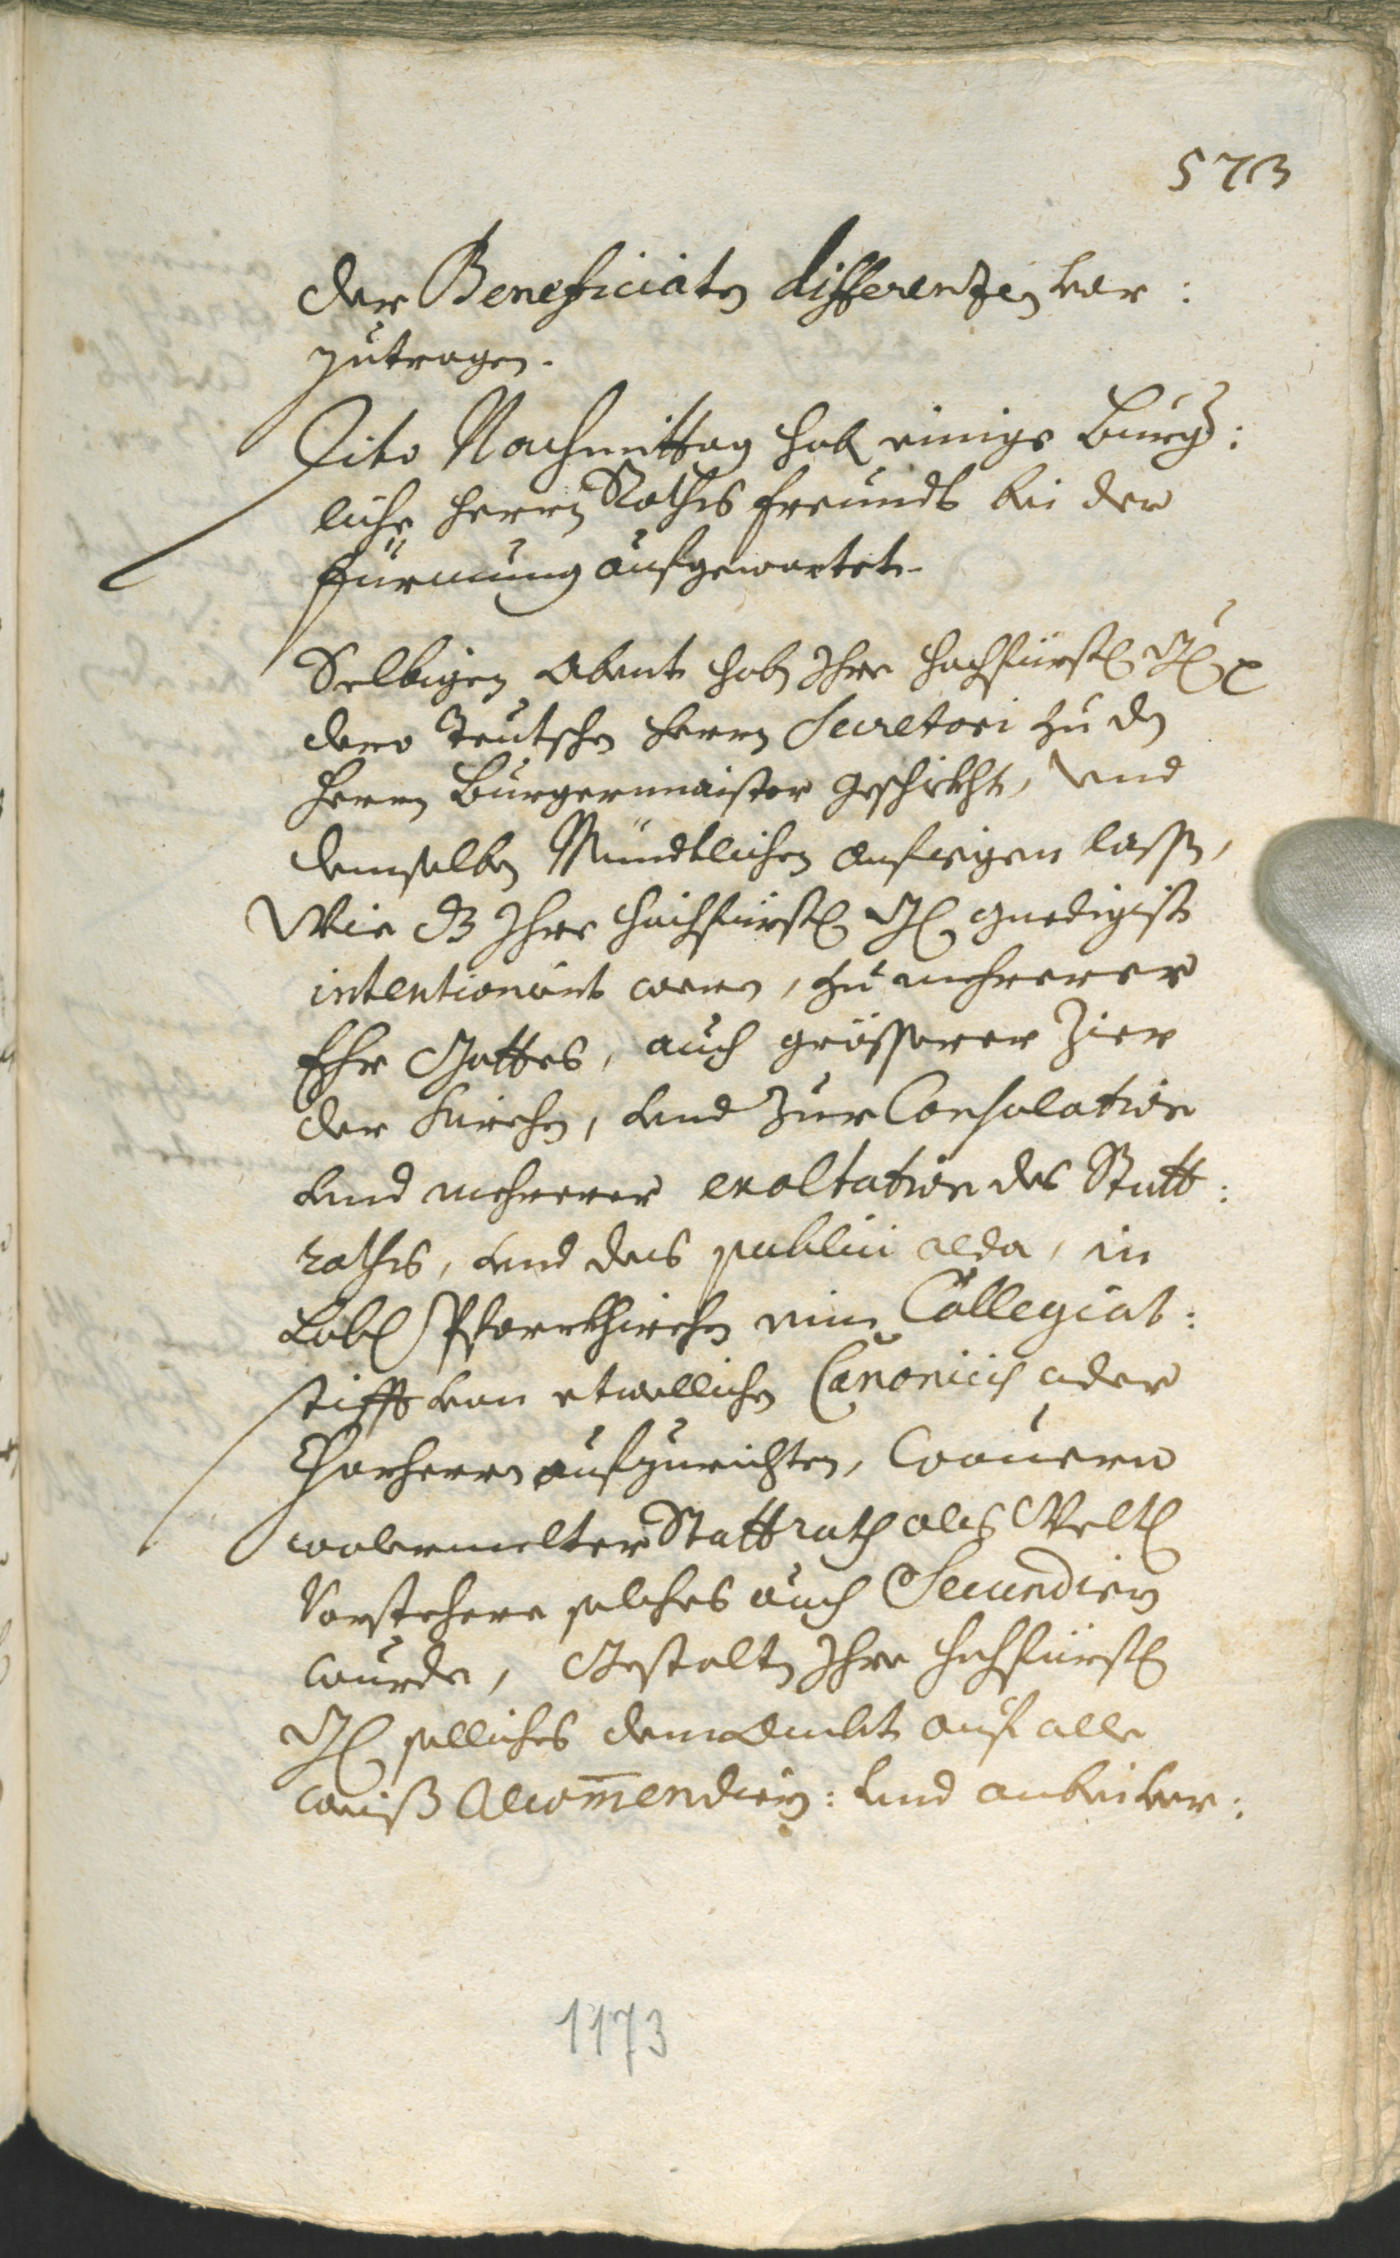 573
der Beneficiatn differenzen vor:
zutragen.
Dito Nachmittag hab einige Burg:
liche Herrn Raths freundt bei der
Fürmung aufgewartet.
Selbigen Abent hab Ihre Hochfürstl Gl
dero Teutschen Herrn Secretari zu dn
Herrn Burgermaister geschikht, vnd
demselben Mündtlichen anfiegen lassn,
Wie dz Ihre Hochfürstl Gl gnedigist
intentioniert wern, zu mehrerer
Ehr Gottes, auch grösserer Zier
der Kirchn, vnd zur Consolation
vnd mehrerer exaltation des Statt:
raths, vnd des publici alda, in
Löbl Pfarrkhirchn ein Collegiat:
stifft von etwellichn Canonicis oder
Chorherrn aufzurichten, wouern
wolermelter Stattrath als Weltl
Vorstehere solches auch Secundiern
wurde, Gestaltn Ihre Hochfürstl
Gl solliches dem auf alle
weiß Recom̄endiern: vnd anbei ver:
1173